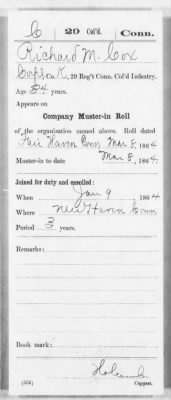 C 29 Col'd. Conn.
Richard M. Cox
Corp, Co. K, 29 Reg't Conn. Col'd Infantry.
Age 34 years.
Appears on
Company Muster-in Roll
of the organization named above. Roll dated
Fair Haven Conn Mar 8, 1864.
Muster-in to date Mar 8, 1864.
Joined for duty and enrolled:
When Jan 9 1864
Where New Haven Conn
Period 3 years.
Remarks:
Book mark:
Holcomb
(356) Copyist.